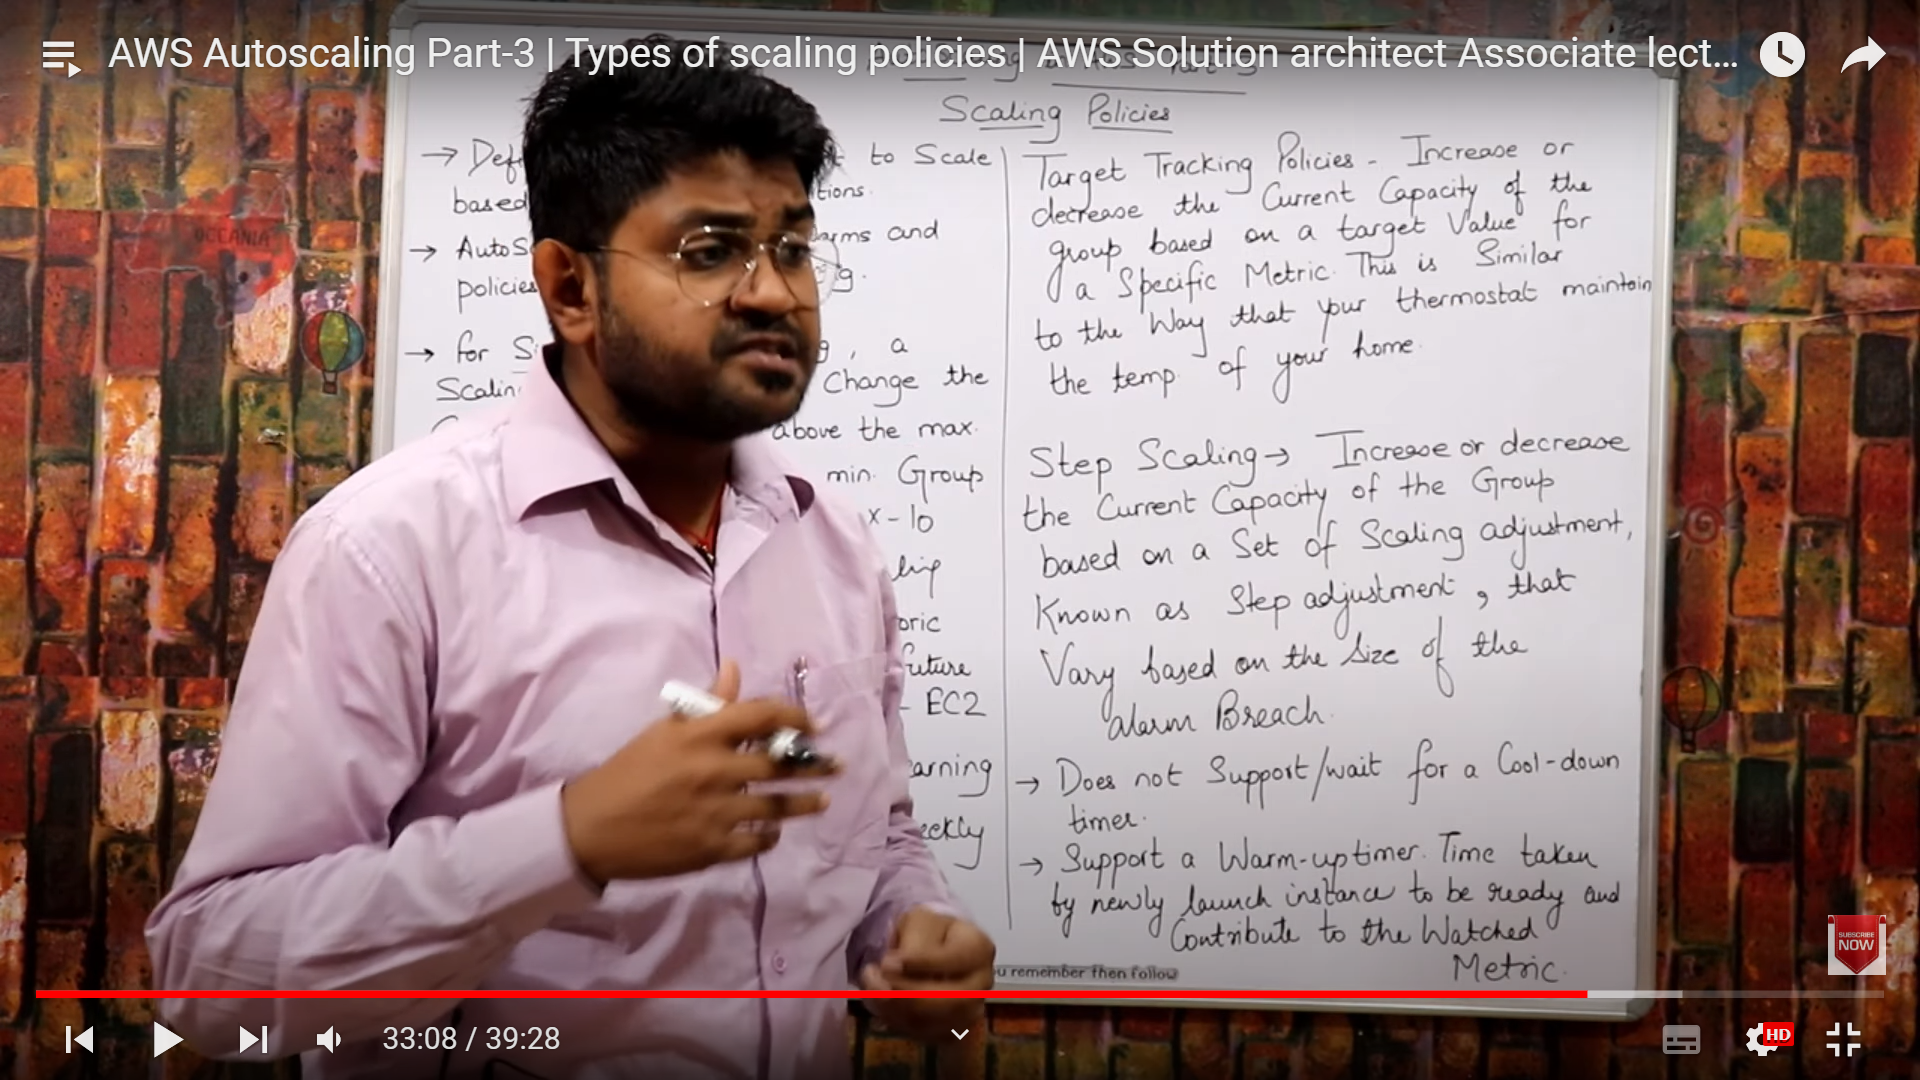 AWS Autoscaling Part-3 | Types of scaling policies | AWS Solution architect Associate lect...
Scaling Policies
→ Def to Scale
based itions.
→ AutoS arms and
policies g.
→ for S g, a
Scalin Change the
above the max.
min. Group
x-10
ling
oric
future
- EC2
arning
eekly
Target Tracking Policies - Increase or
decrease the Current Capacity of the
group based on a target Value for
a Specific Metric. This is Similar
to the Way that your thermostat maintain
the temp. of your home.
Step Scaling → Increase or decrease
the Current Capacity of the Group
based on a Set of Scaling adjustment,
Known as Step adjustment, that
Vary based on the Size of the
alarm Breach.
→ Does not Support/wait for a Cool-down
timer.
→ Support a Warm-up timer. Time taken
by newly launch instance to be ready and
Contribute to the Watched
Metric.
u remember then follow
OCEANIA
SUBSCRIBE
NOW
33:08 / 39:28
HD